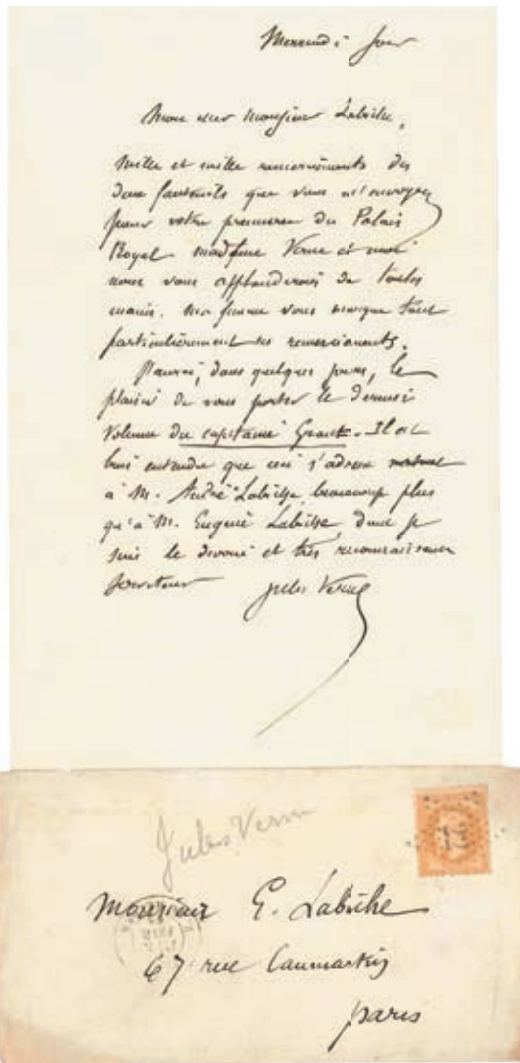 Mercredi soir
Mon cher Monsieur Labiche,
Mille et mille remerciements des
deux fauteuils que vous m'envoyez
pour votre première du Palais
Royal. Madame Verne et moi
nous vous applaudirons de toutes
mains. Ma femme vous envoie tout
particulièrement ses remerciements.
J'aurai, dans quelques jours, le
plaisir de vous porter le dernier
volume du capitaine Grant. Il est
bien entendu que ceci s'adresse
à M. André Labiche beaucoup plus
qu'à M. Eugène Labiche, dont je
suis le dévoué et très reconnaissant
serviteur
Jules Verne
Jules Verne
Monsieur E. Labiche
67 rue Caumartin
Paris